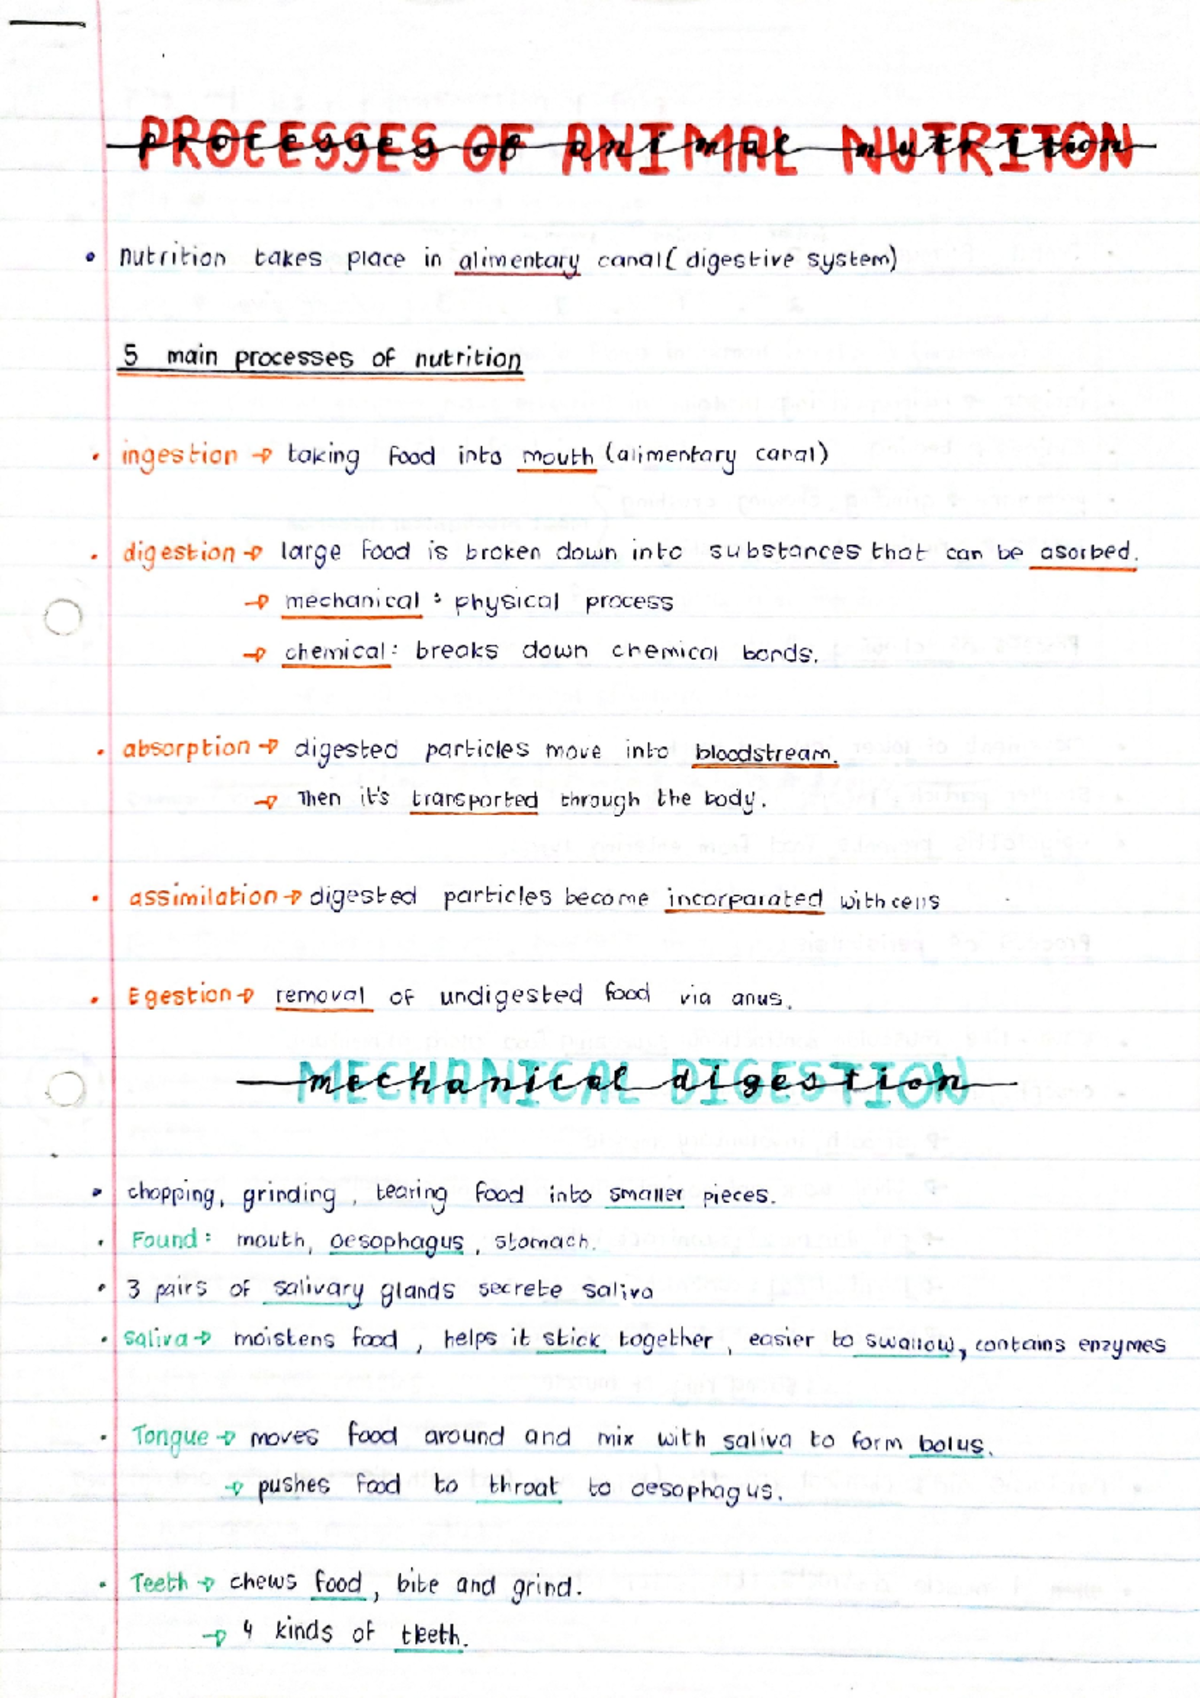 PROCESSES OF ANIMAL NUTRITON
processes of animal nutrition
• nutrition takes place in alimentary canal( digestive system)
5 main processes of nutrition
• ingestion → taking food into mouth (alimentary canal)
• digestion → large food is broken down into substances that can be asorbed.
→ mechanical : physical process
→ chemical : breaks down chemical bonds.
• absorption → digested particles move into bloodstream.
→ Then it's transported through the body.
• assimilation → digested particles become incorparated with cells
• Egestion → removal of undigested food via anus.
MECHANICAL DIGESTION
mechanical digestion
• chopping, grinding, tearing food into smaller pieces.
• Found : mouth, oesophagus, stomach.
• 3 pairs of salivary glands secrete saliva
• saliva → moistens food, helps it stick together, easier to swallow, contains enzymes
• Tongue → moves food around and mix with saliva to form bolus.
→ pushes food to throat to oesophagus.
• Teeth → chews food, bite and grind.
→ 4 kinds of teeth.